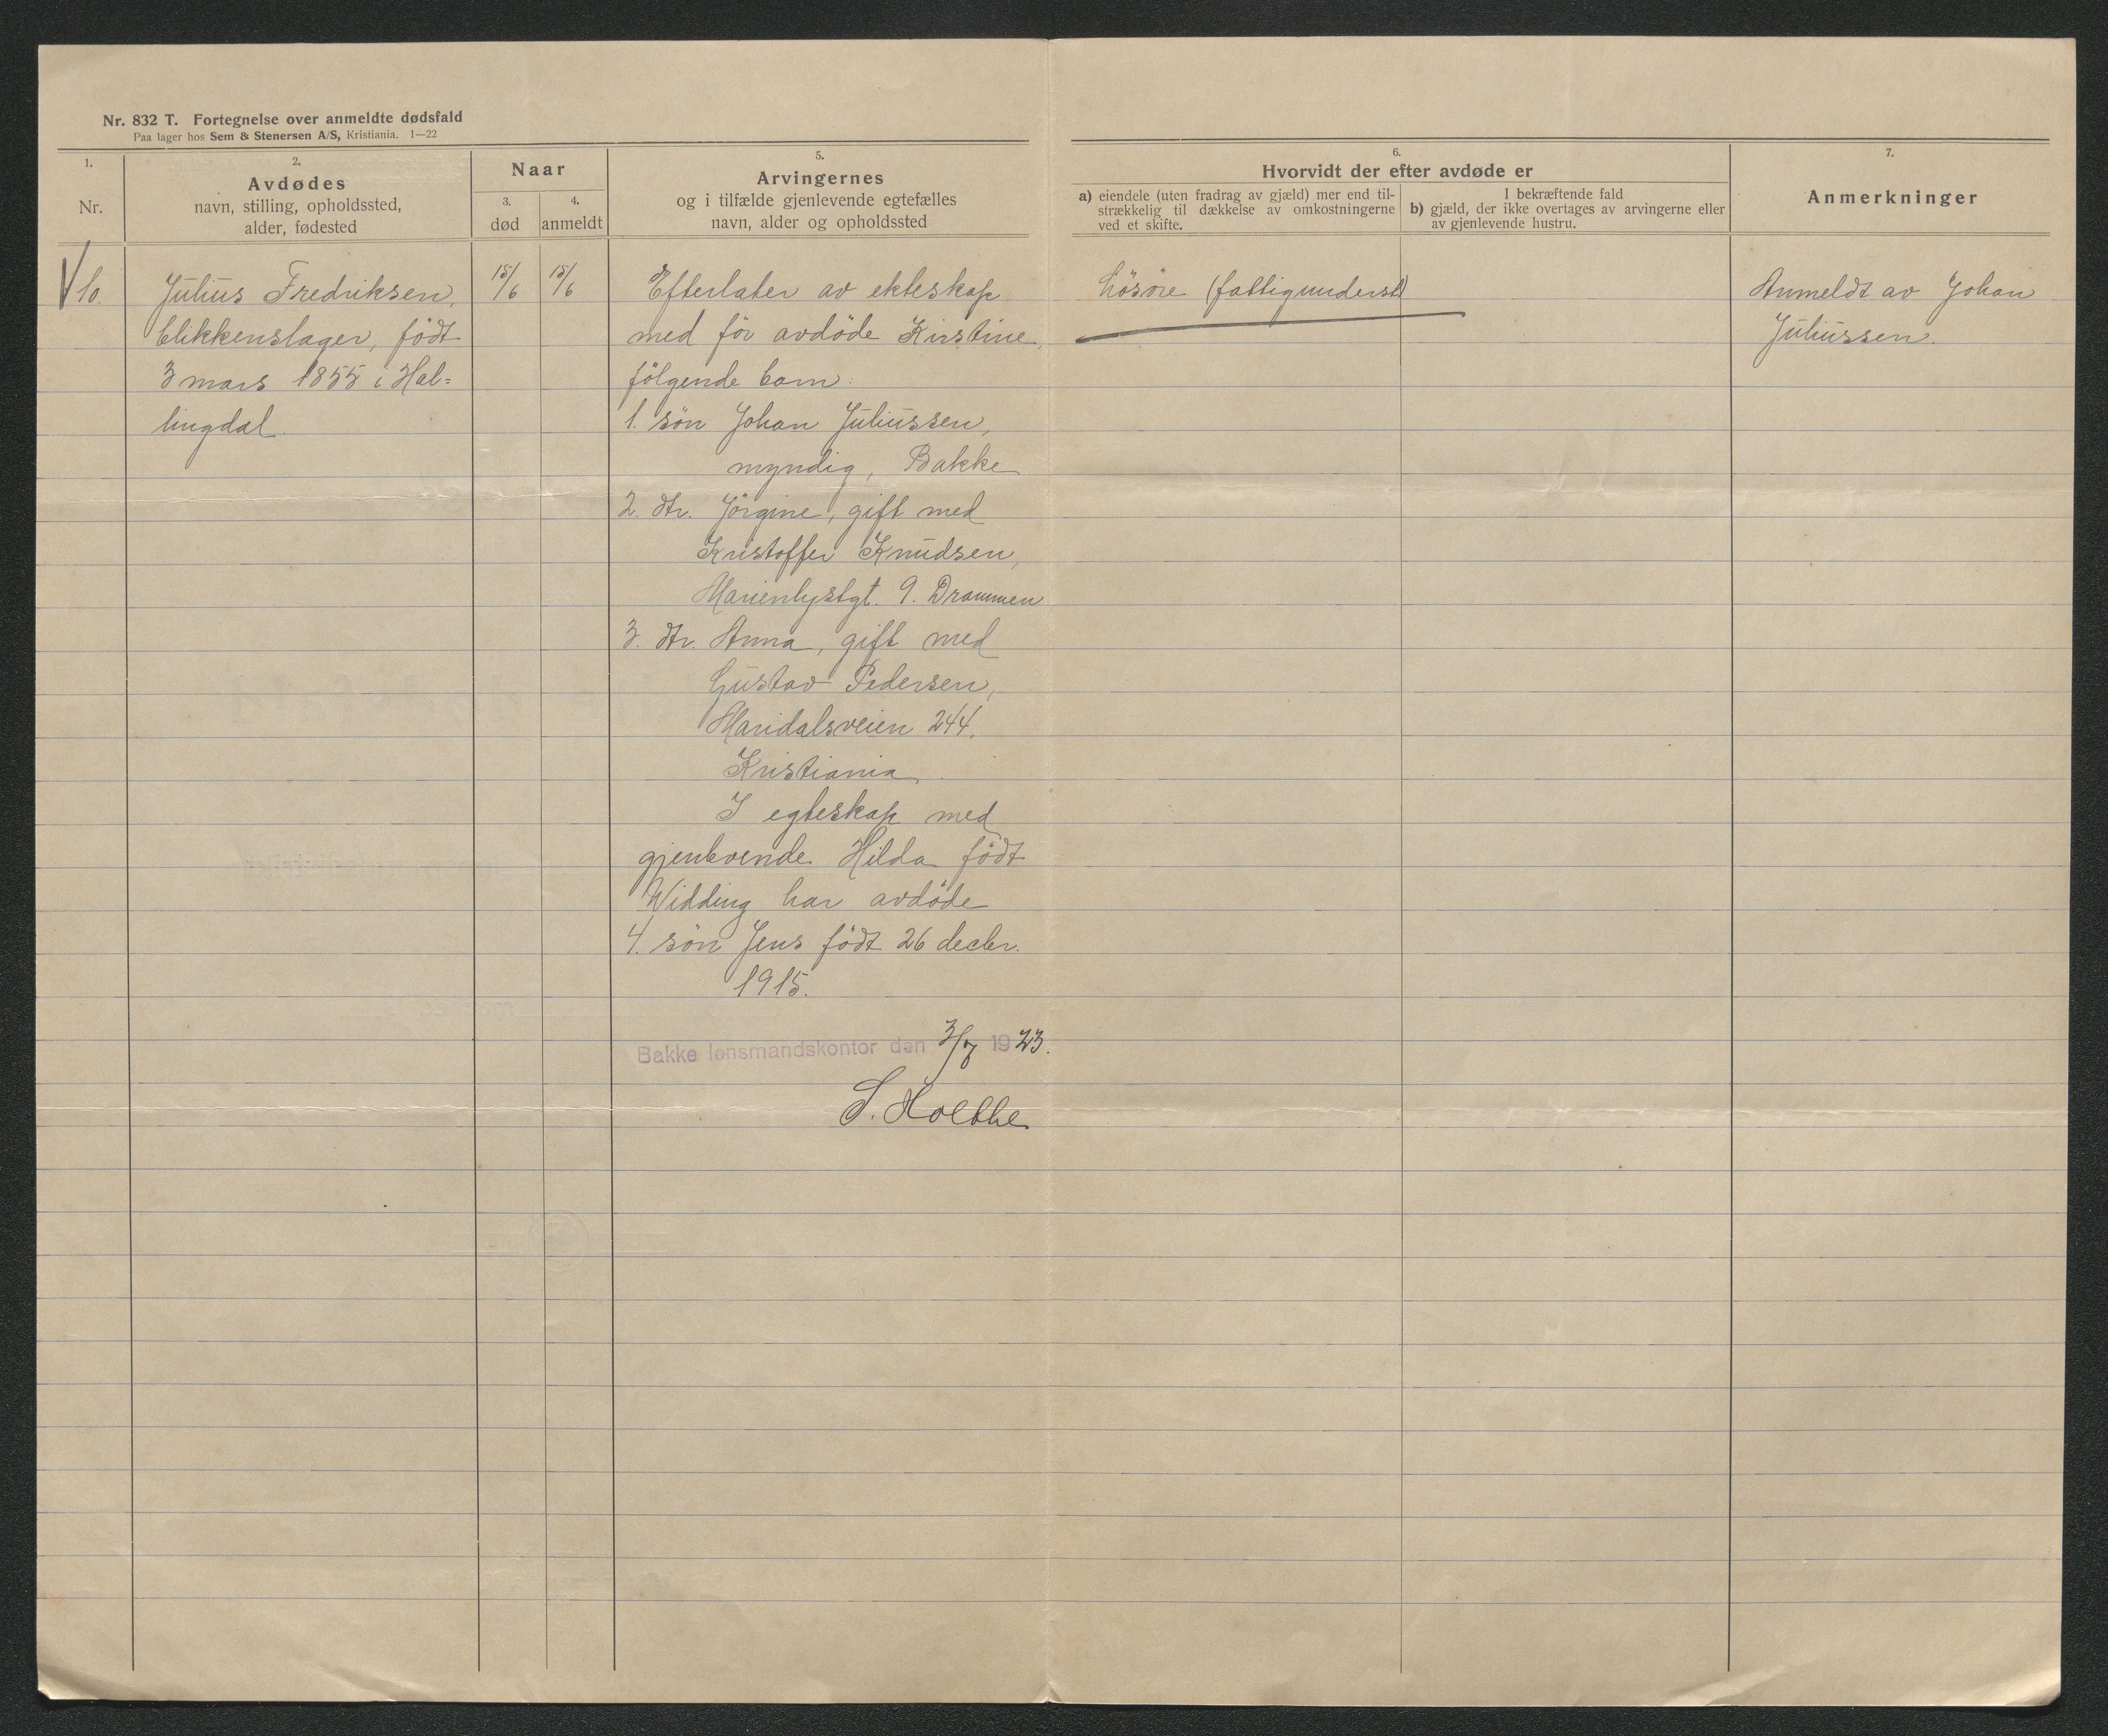 Nr. 832 T. Fortegnelse over anmeldte dødsfald
Paa lager hos Sem & Stenersen A/S, Kristiania. 1—22
1.
Nr.
2.
Avdødes
navn, stilling, opholdssted,
alder, fødested
Naar
3.
død
4.
anmeldt
5.
Arvingernes
og i tilfælde gjenlevende egtefælles
navn, alder og opholdssted
6.
Hvorvidt der efter avdøde er
a) eiendele (uten fradrag av gjæld) mer end til-
strækkelig til dækkelse av omkostningerne
ved et skifte.
I bekræftende fald
b) gjæld, der ikke overtages av arvingerne eller
av gjenlevende hustru.
7.
Anmerkninger
10.
Julius Fredriksen,
blikkenslager, födt
3 mars 1855 i Hal=
lingdal.
15/6
15/6
Efterlater av ekteskap
med för avdöde Kirstine,
fölgende barn:
1. sön Johan Juliussen,
myndig, Bakke
2. dtr. Jörgine, gift med
Kristoffer Knudsen,
Marienlystgt. 9. Drammen
3. dtr. Anna, gift med
Gustav Pedersen,
Maridalsveien 244,
Kristiania.
I egteskap med
gjenlevende Hilda födt
Widding har avdöde
4. sön Jens födt 26 decbr.
1915.
Bakke lensmandskontor den 3/7 1923.
S. Holthe
Lösöre (fattigunderst)
Anmeldt av Johan
Juliussen.